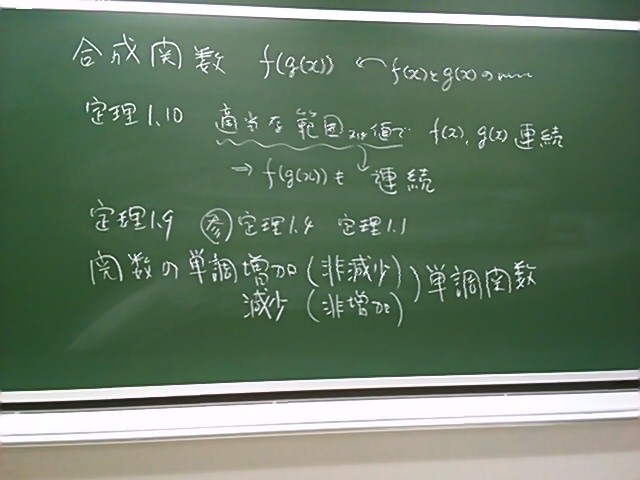 合成関数 f(g(x)) f(x)とg(x)の
定理1.10 適当な範囲又は値で f(x), g(x) 連続
⇒ f(g(x))も 連続
定理1.9 参 定理1.4 定理1.1
関数の単調増加(非減少)
減少(非増加)
単調関数